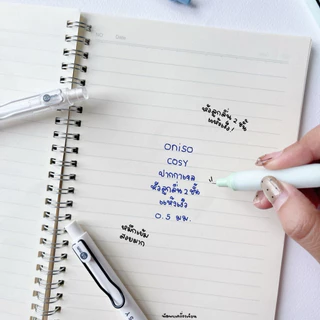 หัวลูกลื่น 2 ชั้น
แห้งเร็ว!
oniso
cosy
ปากกาเจล
หัวลูกลื่น 2 ชั้น
แห้งเร็ว
0.5 มม.
หมึกเข้ม
สวยมาก